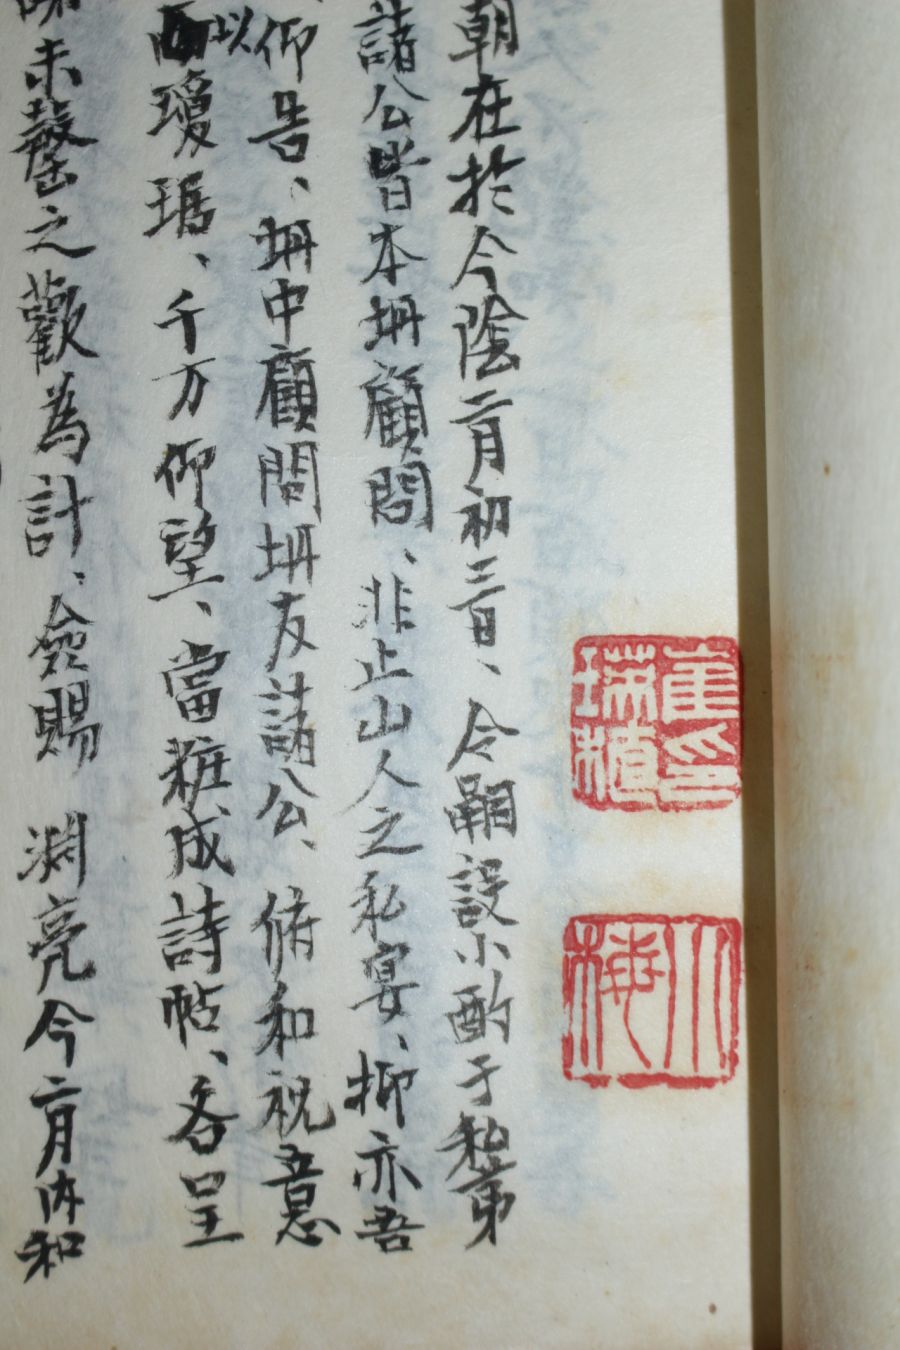 朝在於今陰二月初三日、令嗣設小酌于私第
諸公皆本坍顧問、非止山人之私宴、抑亦吾
仰告、坍中顧問坍友諸公、俯和祝吾意
以瓊、千万仰望、當粧成詩帖、各呈
未罄之歡為計、僉賜 淵亮今二月內和
崔印
瑞植
梅